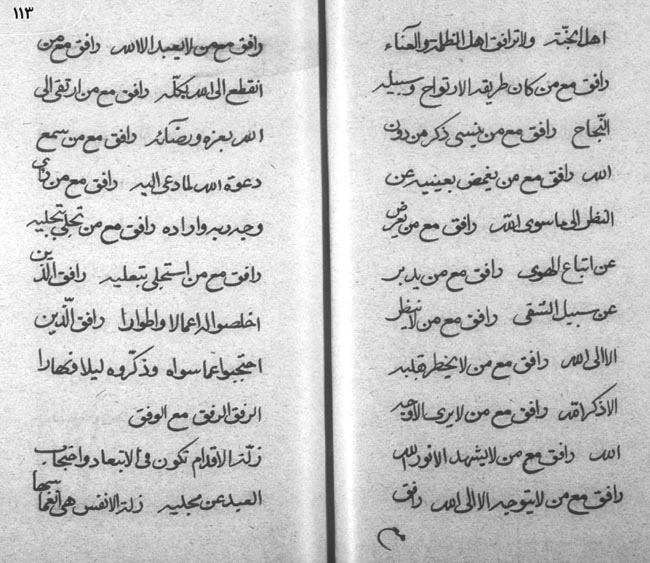 ١١٣
اهل الجنّة ولا ترافق اهل الظلمة والعناء
رافق مع من كان طريقه الارتواح وسبيله
النّجاح رافق مع من ينسى ذكر من دون
الله رافق مع من يغمض بعينيه عن
النظر الى ما سوى الله رافق مع من يعرض
عن اتباع الهوى رافق مع من يدبر
عن سبيل الشقى رافق مع من لا ينظر
الا الى الله رافق مع من لا يخطر بقلبه
الا ذكر الله رافق مع من لا يرى الا وجه
الله رافق مع من لا يشهد الا نور الله
رافق مع من لا يتوجه الا الى الله رافق
رافق مع من لا يعبد الا الله رافق مع من
انقطع الى الله بكلّه رافق مع من ارتقى الى
الله بعزه ورضائه رافق مع من سمع
دعوة الله لما دعى اليه رافق مع من رأى
وجه ربه واراده رافق مع من تجلى بتجليه
رافق مع من استجلى بتعليه رافق الذين
اخلصوا له اعمالا واطوارا رافق الّذين
احتجبوا عما سواه وذكّروه ليلا ونهارا
الرفق الرفق مع الوفق
زلة الاقدام تكون فى الابتعاد واحتجاب
العبد عن مجليه زلة الانفس هى